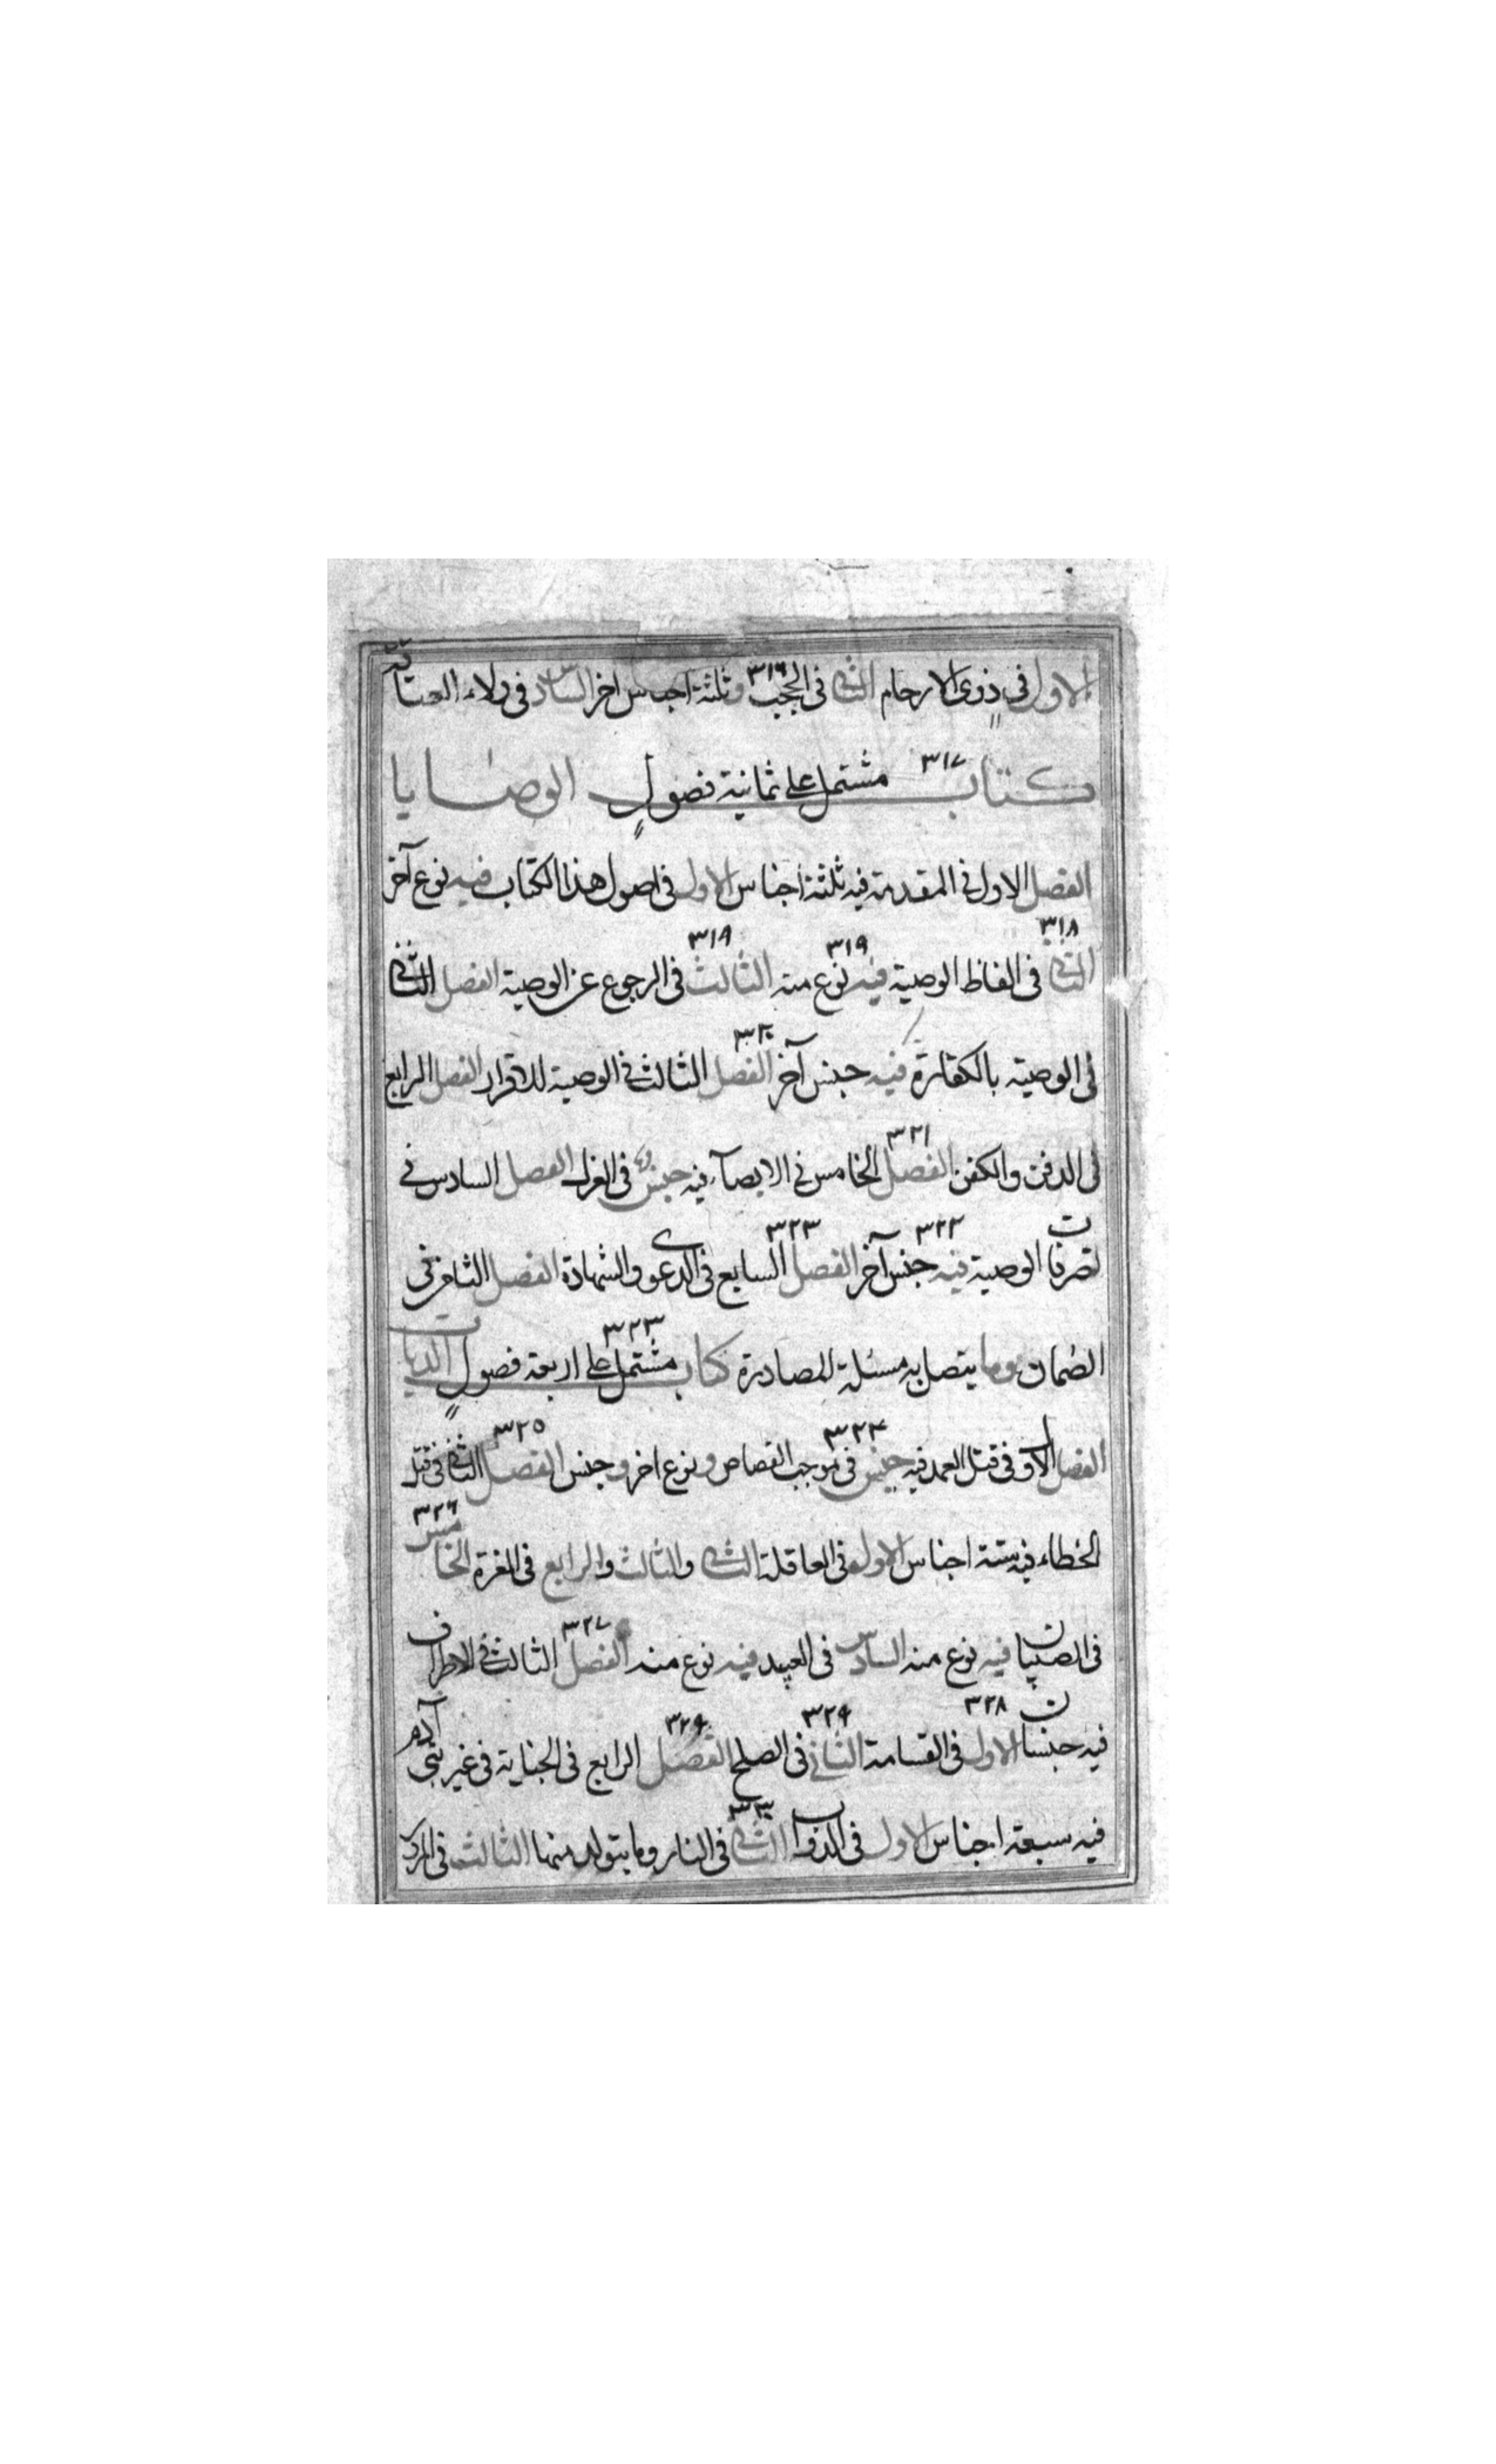 الاول في ذوي الارحام الثاني في الحجب ٣١٦ وثلثة اجناس اخر السادس في ولاء العتاقة
كتاب ٣١٧ مشتمل على ثمانية فصول الوصايا
الفصل الاول في المقدمة فيه ثلثة اجناس الاول في اصول هذا الكتاب فيه نوع آخر
الثاني ٣١٨ في الفاظ الوصية فيه ٣١٩ نوع منه الثالث ٣١٩ في الرجوع عن الوصية الفصل الثاني
في الوصية بالكفارة فيه جنس آخر الفصل ٣٢٠ الثالث في الوصية للاقرار الفصل الرابع
في الدفن والكفن الفصل ٣٢١ الخامس في الايصآء فيه جنس في العزل الفصل السادس في
تصرفات الوصية فيه جنس ٣٢٢ آخر الفصل ٣٢٣ السابع في الدعوى والشهادة الفصل الثامن في
الضمان وما يتصل به مسئلة المصادرة كتاب ٣٢٣ مشتمل على اربعة فصول الديات
الفصل الاول في قتل العمد فيه جنس في موجب ٣٢٤ القصاص ونوع اخر وجنس الفصل ٣٢٥ الثاني في قتل
الخطاء فيه ستة اجناس الاول في العاقلة الثاني والثالث والرابع في الغرة الخامس ٣٢٦
في الصبيان فيه نوع منه السادس في العبيد فيه نوع منه الفصل ٣٢٧ الثالث في الاطراف
فيه جنسان الاول ٣٢٨ في القسامة الثاني ٣٢٩ في الصلح الفصل ٣٢٩ الرابع في الجناية في غير بني آدم
فيه سبعة اجناس الاول في الدواب الثاني ٣٣٠ في النار وما يتولد منها الثالث في